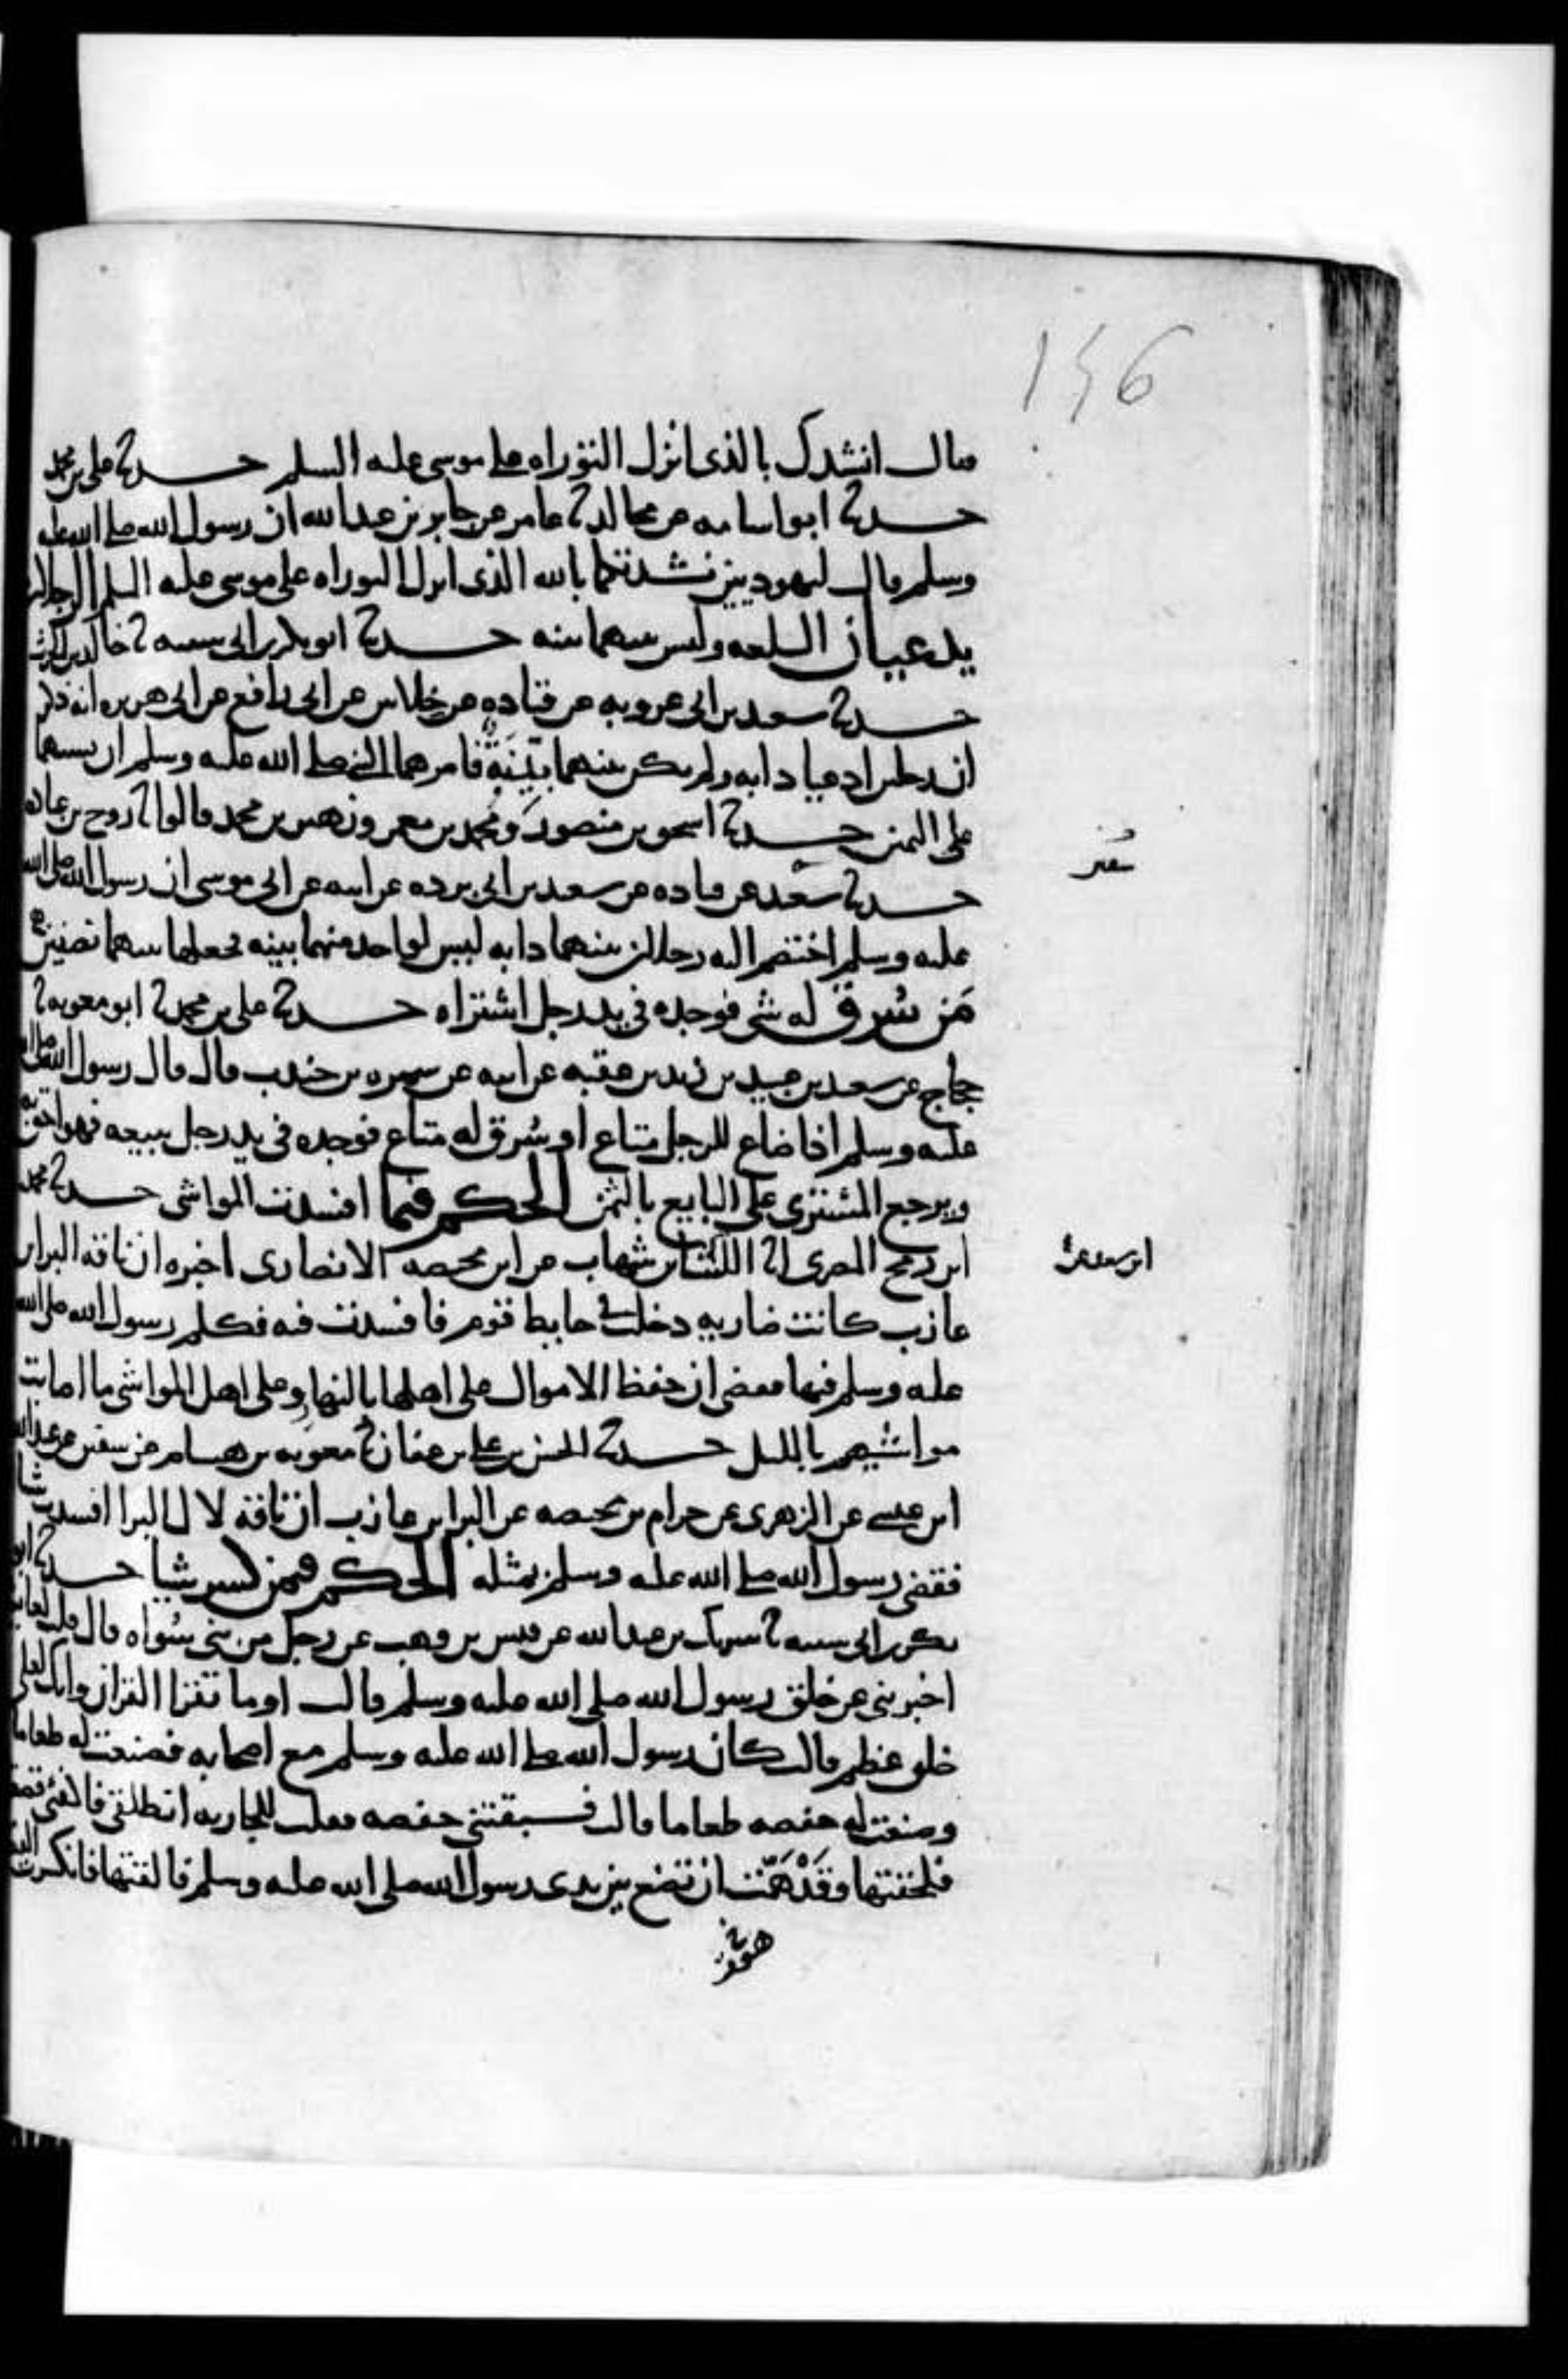 146
فقال انشدك بالذى انزل التوراه على موسى عليه السلم حدثنا على بن محمد
حدثنا ابو اسامه عن مجالد انا عامر عن جابر بن عبد الله ان رسول الله صلى الله عليه
وسلم قال ليهوديين نشدتكما بالله الذى انزل التوراه على موسى عليه السلم الرجلان
يدعيان السلعه وليس بينهما بينه حدثنا ابو بكر بن ابى شيبه نا خالد بن الحرث
حدثنا سعيد بن ابى عروبه عن قتاده عن خلاس عن ابى رافع عن ابى هريره انه ذكر
ان رجلين ادعيا دابه ولم يكن بينهما بَيِّنَةٌ فامرهما النبى صلى الله عليه وسلم ان يستهما
على اليمين حدثنا اسحق بن منصور ومحمد بن معمر وزهير بن محمد قالوا نا روح بن عباده
حدثنا سعيد عن قتاده عن سعيد بن ابى برده عن ابيه عن ابى موسى ان رسول الله صلى الله
عليه وسلم اختصم اليه رجلان بينهما دابه ليس لواحد منهما بينه فجعلها بينهما نصفين
مَن سُرِق له شى فوجده فى يد رجل اشتراه حدثنا على بن محمد نا ابو معويه نا
حجاج عن سعيد بن عبيد بن زيد بن عقبه عن ابيه عن سمره بن جندب قال قال رسول الله صلى الله
عليه وسلم اذا ضاع للرجل متاع او سُرق له متاع فوجده فى يد رجل يبيعه فهو احق به
ويرجع المشترى على البايع بالثمن الحكم فيما افسدت المواشى حدثنا محمد
ابن رمح المصرى انا الليث بن شهاب عن ابن محيصه الانصارى اخبره ان ناقه البرا بن
عازب كانت ضاريه دخلت فى حايط قوم فافسدت فيه فكلم رسول الله صلى الله
عليه وسلم فيها فقضى ان حفظ الاموال على اهلها بالنهار وعلى اهل المواشى ما اصابت
مواشيهم بالليل حدثنا الحسن بن على بن عفان نا معويه بن هشام عن سفين عن عبد الله
ابن عيسى عن الزهرى عن حرام بن محيصه عن البرا بن عازب ان ناقة لال البرا افسدت شيا
فقضى رسول الله صلى الله عليه وسلم بمثله الحكم فيمن كسر شيا حدثنا ابو
بكر بن ابى شيبه نا شريك بن عبد الله عن قيس بن وهب عن رجل من بنى سُواه قال قلت لعايشه
اخبرينى عن خلق رسول الله صلى الله عليه وسلم قالت اوما تقرا القران وانك لعلى
خلق عظيم قالت كان رسول الله صلى الله عليه وسلم مع اصحابه فصنعت له طعاما
وصنعت له حفصه طعاما قالت فسبقتنى حفصه فقلت للجاريه انطلقى فاكفئى قصعتها
فلحقتها وقَدْ هَمَّت ان تضع بين يدى رسول الله صلى الله عليه وسلم فالقتها فانكسرت
ابن سعد عن